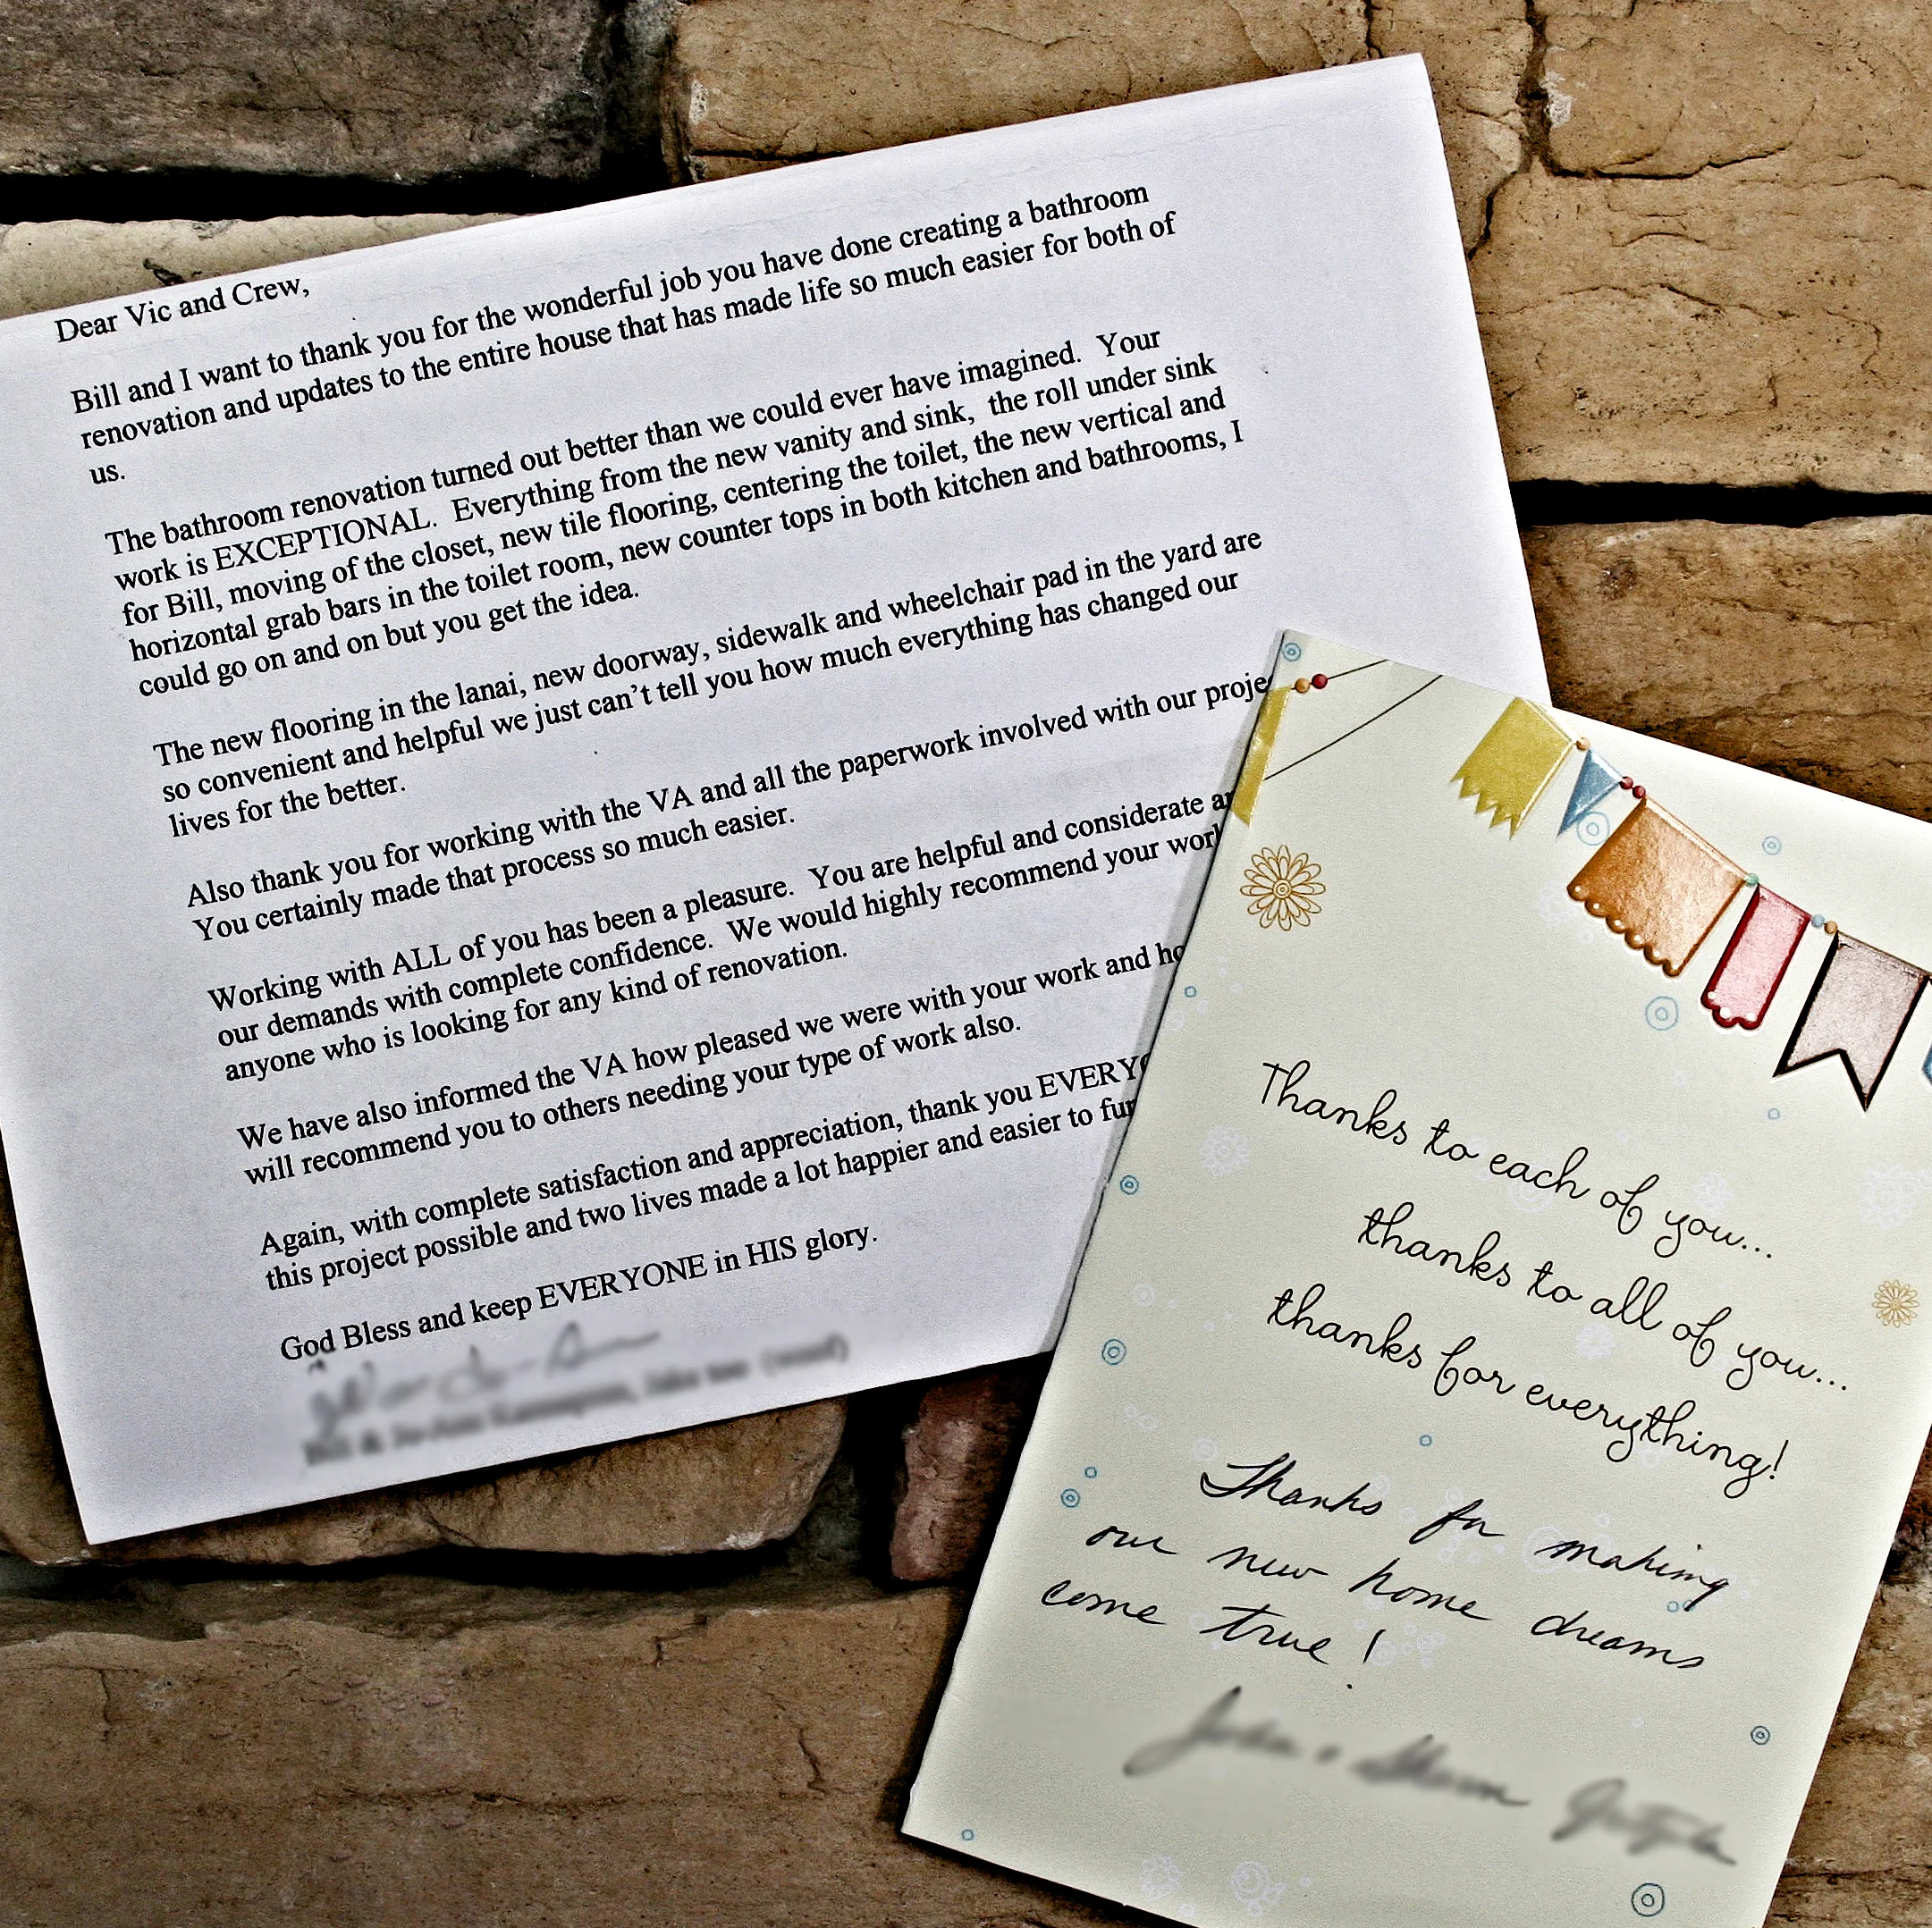 Dear Vic and Crew,
Bill and I want to thank you for the wonderful job you have done creating a bathroom
renovation and updates to the entire house that has made life so much easier for both of
us.
The bathroom renovation turned out better than we could ever have imagined. Your
work is EXCEPTIONAL. Everything from the new vanity and sink, the roll under sink
for Bill, moving of the closet, new tile flooring, centering the toilet, the new vertical and
horizontal grab bars in the toilet room, new counter tops in both kitchen and bathrooms, I
could go on and on but you get the idea.
The new flooring in the lanai, new doorway, sidewalk and wheelchair pad in the yard are
so convenient and helpful we just can't tell you how much everything has changed our
lives for the better.
Also thank you for working with the VA and all the paperwork involved with our
You certainly made that process so much easier.
Working with ALL of you has been a pleasure. You are helpful and considerate
our demands with complete confidence. We would highly recommend your
anyone who is looking for any kind of renovation.
We have also informed the VA how pleased we were with your work and
will recommend you to others needing your type of work also.
Again, with complete satisfaction and appreciation, thank you
this project possible and two lives made a lot happier and easier to
God Bless and keep EVERYONE in HIS glory.
Thanks to each of you...
thanks to all of you...
thanks for everything!
Thanks for making
our new home dreams
come true!